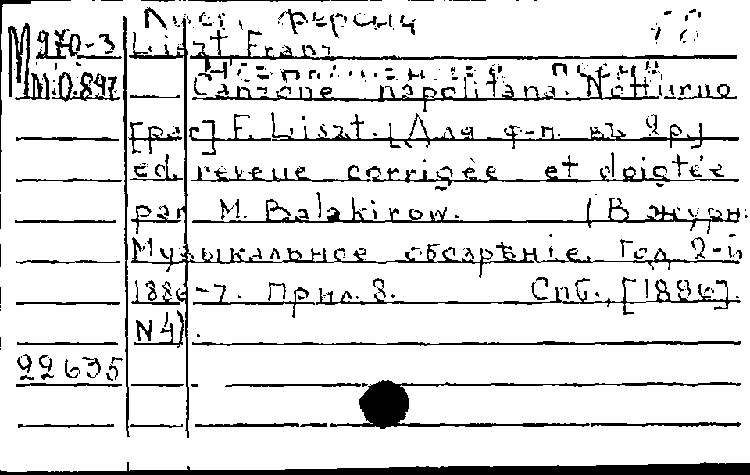 Лист, Ференц
М 970-3 Liszt Franz
Неаполитанская песня
М:О.897 Canzone napolitana. Notturno
[par] F. Liszt. [Для ф-п. въ 2 р.]
ed. revue corrigée et doigtée
par M. Balakirow. (В журн.
Музыкальное обозрѣніе. Год 2-й
1886-7. Прил. 8. Спб., [1886].
N4).
22635